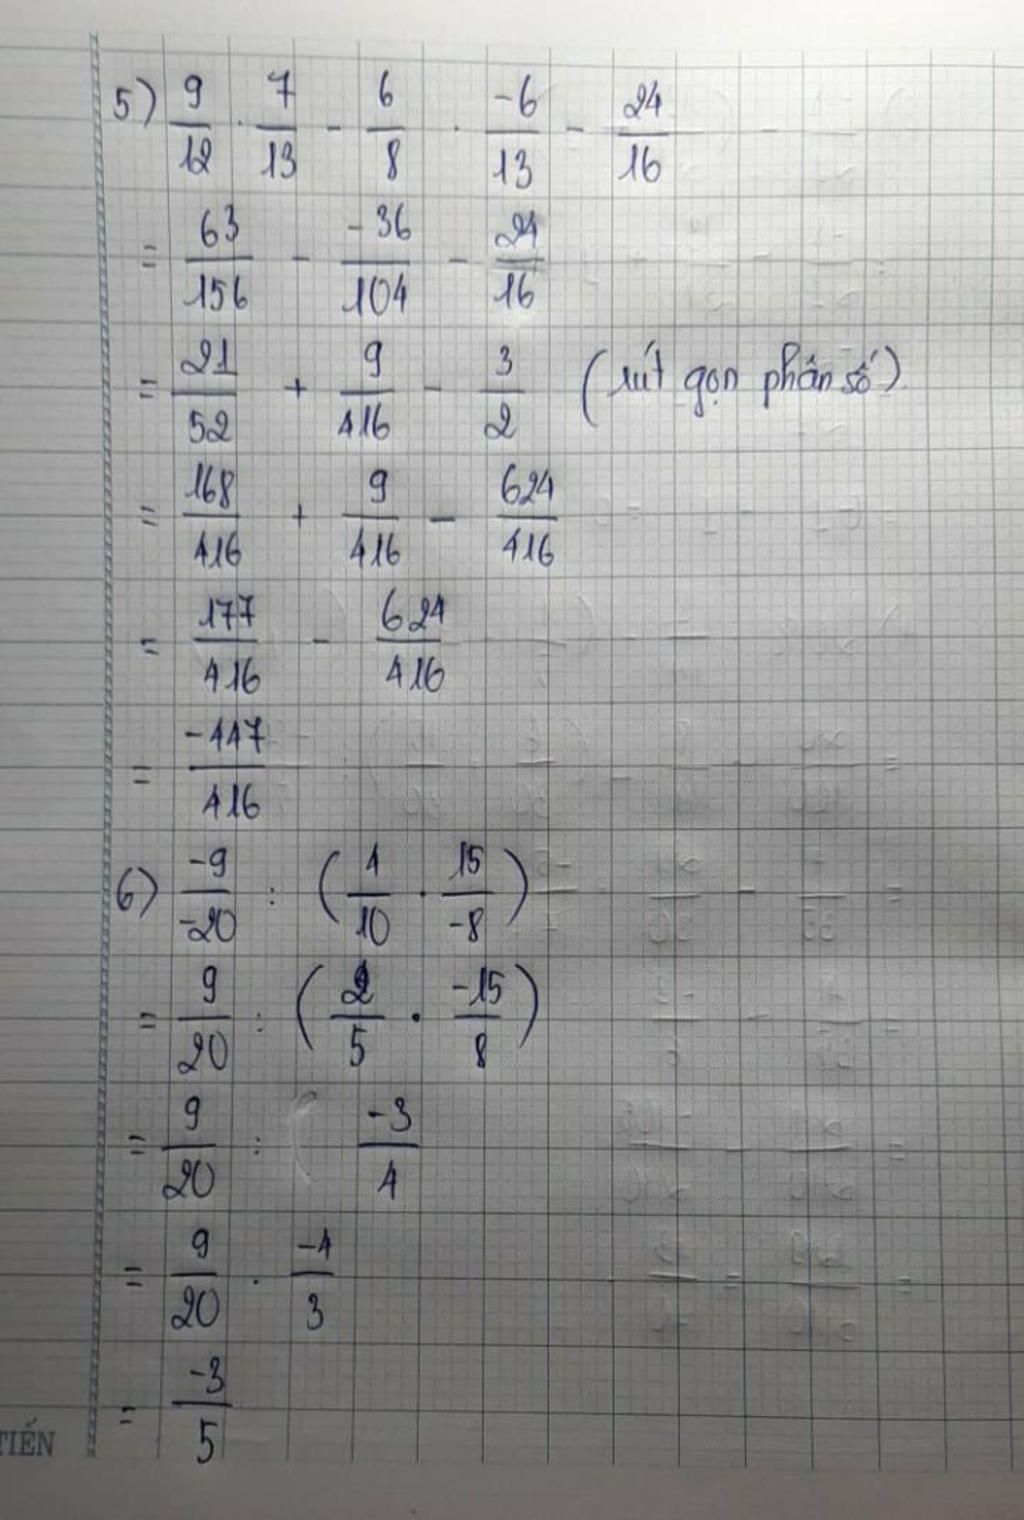 5) 9/12 . 7/13 - 6/8 . -6/13 - 24/16
= 63/156 - -36/104 - 24/16
= 21/52 + 9/416 - 3/2 (rút gọn phân số)
= 168/416 + 9/416 - 624/416
= 177/416 - 624/416
= -447/416
6) -9/-20 : (1/10 . 15/-8)
= 9/20 : (2/5 . -15/8)
= 9/20 : -3/4
= 9/20 . -4/3
= -3/5
TIẾN